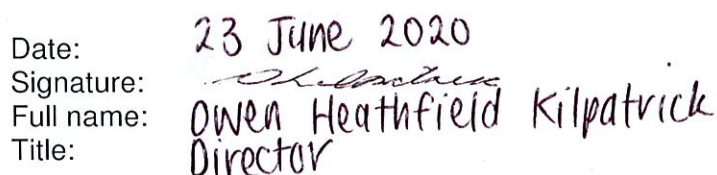 Date: 23 June 2020
Signature:
Full name: Owen Heathfield Kilpatrick
Title: Director